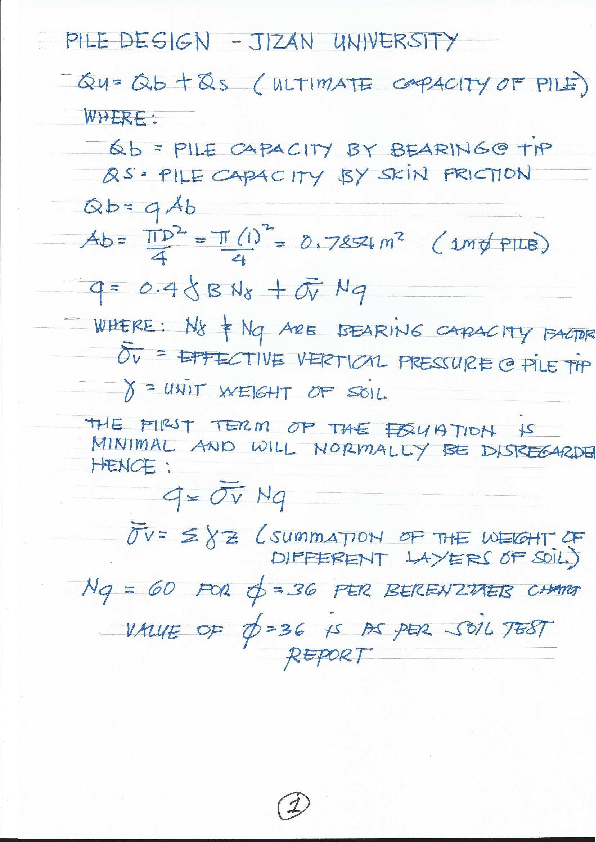 PILE DESIGN - JIZAN UNIVERSITY
Qu = Qb + Qs ( ULTIMATE CAPACITY OF PILE)
WHERE:
Qb = PILE CAPACITY BY BEARING @ TIP
QS = PILE CAPACITY BY SKIN FRICTION
Qb = q Ab
Ab = πD²/4 = π(1)²/4 = 0.7854 m² (1m∅ PILE)
q = 0.4 γ B Nγ + σ̄v Nq
WHERE: Nγ & Nq ARE BEARING CAPACITY FACTOR
σ̄v = EFFECTIVE VERTICAL PRESSURE @ PILE TIP
γ = UNIT WEIGHT OF SOIL
THE FIRST TERM OF THE EQUATION IS
MINIMAL AND WILL NORMALLY BE DISREGARDE
HENCE:
q = σ̄v Nq
σ̄v = Σ γ z (SUMMATION OF THE WEIGHT OF
DIFFERENT LAYERS OF SOIL)
Nq = 60 FOR ϕ = 36 PER CHART
VALUE OF ϕ = 36 IS AS PER SOIL TEST
REPORT
1